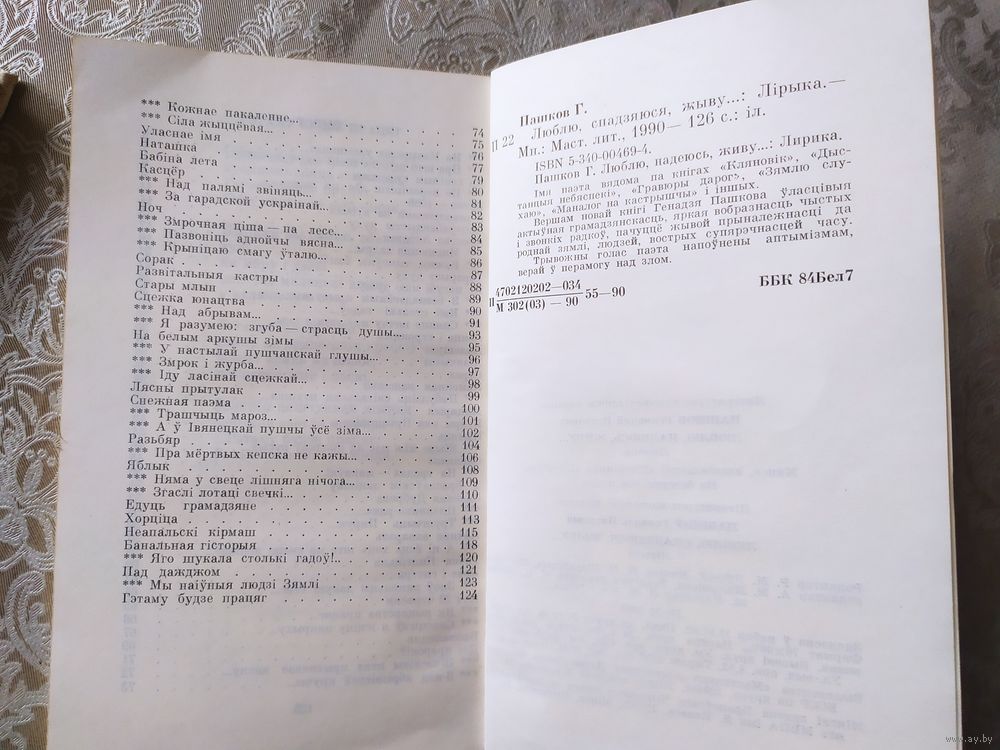 *** Кожнае пакаленне... 74
*** Сіла жыццёвая... 75
Уласнае імя 76
Наташка 77
Бабіна лета 79
Касцёр 80
*** Над палямі звіняць... 81
*** За гарадской ускраінай... 82
Ноч 83
*** Змрочная ціша — па лесе... 84
*** Пазвоніць аднойчы вясна... 85
*** Крыніцаю смагу ўталю... 86
Сорак 87
Развітальныя кастры 88
Стары млын 89
Сцежка юнацтва 90
*** Над абрывам... 91
*** Я разумею: згуба — страсць душы... 93
На белым аркушы зімы 95
*** У настылай пушчанскай глушы... 96
*** Змрок і журба... 97
*** Іду ласінай сцежкай... 98
Лясны прытулак 99
Снежная паэма 100
*** Трашчыць мароз... 101
*** А ў Івянецкай пушчы ўсё зіма... 102
Разьбяр 104
*** Пра мёртвых кепска не кажы... 106
Яблык 108
*** Няма у свеце лішняга нічога... 109
*** Згаслі лотаці свечкі... 110
Едуць грамадзяне 111
Хорціца 113
Неапальскі кірмаш 115
Банальная гісторыя 118
*** Яго шукала столькі гадоў!.. 120
Пад дажджом 121
*** Мы наіўныя людзі Зямлі 123
Гэтаму будзе працяг 124
Пашкоў Г.
П 22 Люблю, спадзяюся, жыву...: Лірыка.—
Мн.: Маст. літ., 1990— 126 с.: іл.
ISBN 5-340-00469-4.
Пашков Г. Люблю, надеюсь, живу...: Лирика.
Імя паэта вядома па кнігах «Кляновік», «Дыс-
танцыя небяспекі», «Гравюры дарог», «Зямлю слу-
хаю», «Маналог на кастрышчы» і іншых.
Вершам новай кнігі Генадзя Пашкова ўласцівыя
актыўная грамадзянскасць, яркая вобразнасць чыстых
і звонкіх радкоў, пачуццё жывой прыналежнасці да
роднай зямлі, людзей, вострых супярэчнасцей часу.
Трывожны голас паэта напоўнены аптымізмам,
верай ў перамогу над злом.
П 4702120202—034
М 302(03) — 90 55—90
ББК 84Бел7
www.ay.by